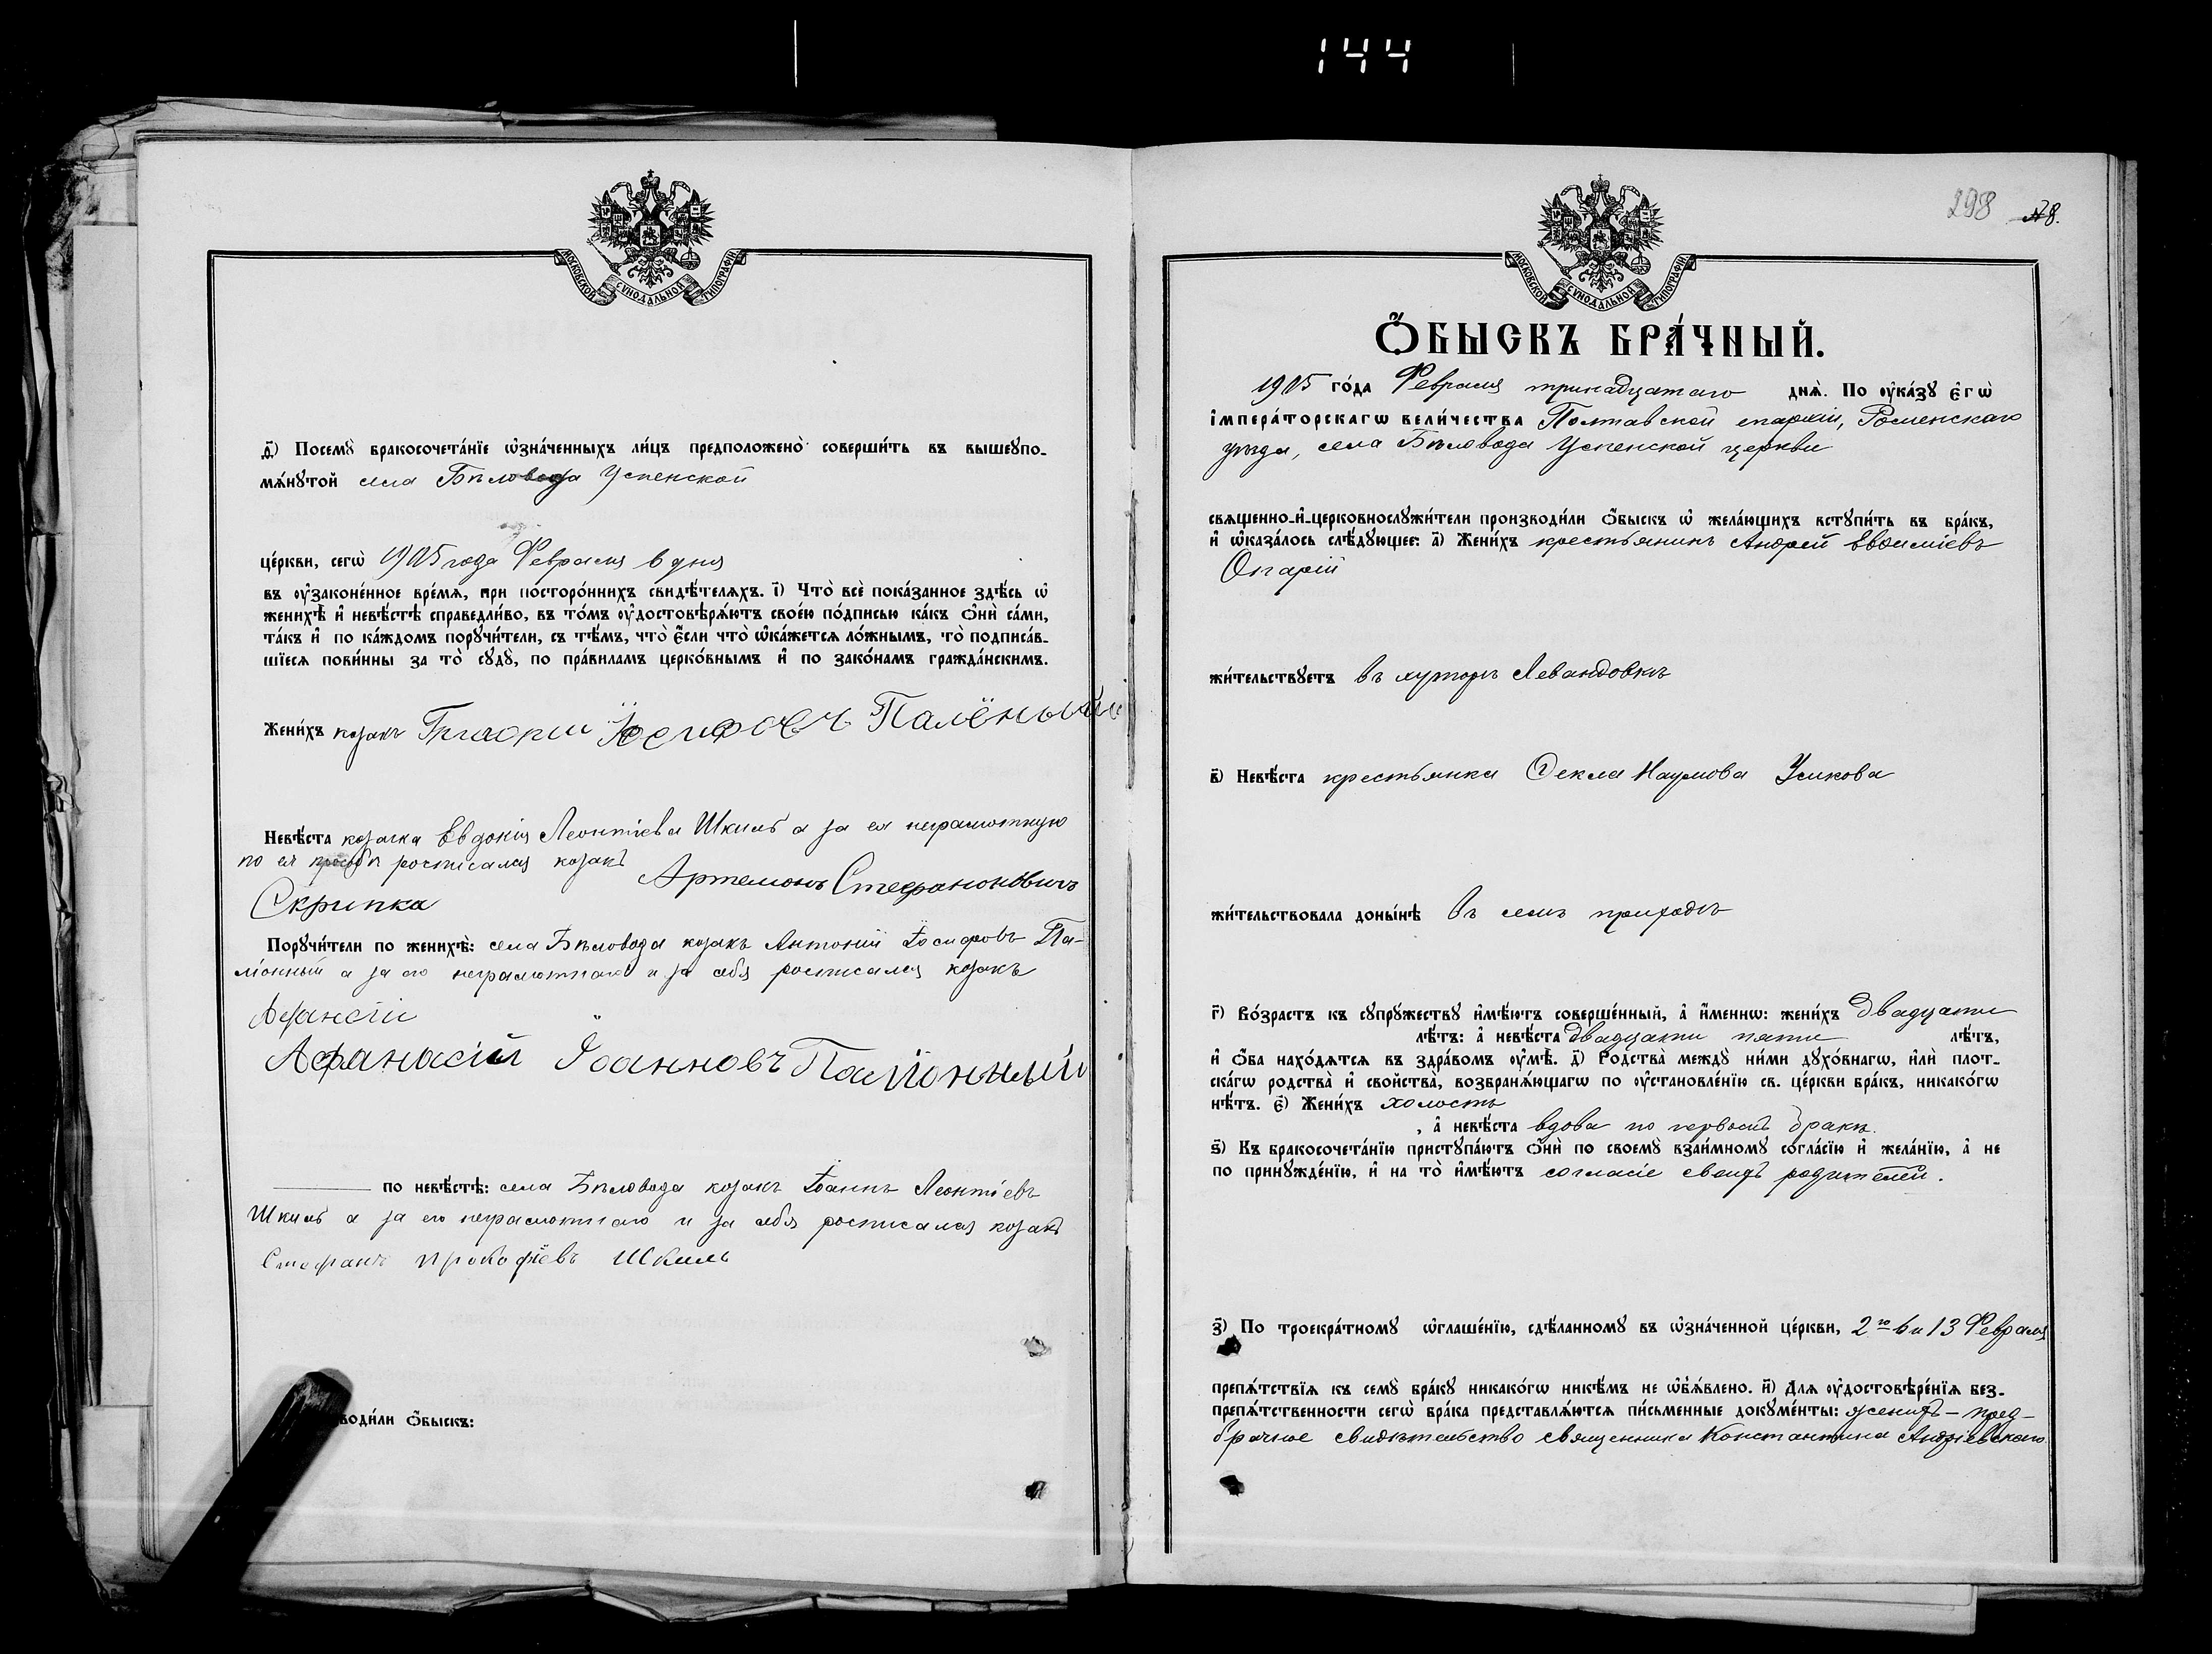 144
МОСКОВСКОЙ СѴНОДАЛЬНОЙ ТИПОГРАФІИ
д҃) Посемꙋ̀ бракосочета́нїе ѡ҆зна́ченныхъ ли́цъ предположено̀ соверши́ть въ вышеꙋпо-
мѧ́нꙋтой села Бѣловода Успенской
це́ркви, сегѡ̀ 1905 года Февраля 6 дня
въ ᲂу҆законе́нное вре́мѧ, при посторо́ннихъ свидѣ́телѧхъ. і҃) Что̀ всѐ пока́занное здѣ́сь ѡ҆
женихѣ̀ и҆ невѣ́стѣ справедли́во, въ то́мъ ᲂу҆достовѣрѧ́ютъ свое́ю по́дписью ка́къ ѻ҆нѝ са́ми,
та́къ и҆ по ка́ждомъ порꙋчи́тели, съ тѣ́мъ, что̀ є҆́сли что̀ ѡ҆ка́жетсѧ ло́жнымъ, то̀ подписа́в-
шїесѧ пови́нны за то̀ сꙋдꙋ̀, по пра́виламъ церко́внымъ и҆ по зако́намъ гражда́нскимъ.
Жени́хъ козакъ Григории Іосифовъ Палёный
Невѣ́ста козачка Евдокія Леонтіева Шкиль а за ея неграмотную
по ея просьбѣ росписался козакъ Артемонъ Стефаноновичъ
Скрипка
Порꙋчи́тели по женихѣ̀: села Бѣловода козакъ Антоній Іосифовъ Па-
ліонный а за его неграмотнаго и за себя росписался козакъ
Афансіи
Афанасій Іоанновъ Паліонный
по невѣ́стѣ: села Бѣловода козакъ Іоаннъ Леонтіевъ
Шкиль а за его неграмотнаго и за себя росписался козакъ
Стефанъ Прокофіевъ Шкиль
води́ли ѻ҆́быскъ:
298 №8.
МОСКОВСКОЙ СѴНОДАЛЬНОЙ ТИПОГРАФІИ
Ѻ҆́БЫСКЪ БРА́ЧНЫЙ.
1905 го́да Февраля тринадцатаго днѧ̀. По ᲂу҆ка́зꙋ є҆гѡ̀
і҆мпера́торскагѡ вели́чества Полтавской епархіи, Роменскаго
уѣзда, села Бѣловода Успенской церкви
свѧщенно-и҆-церковнослꙋжи́тели производи́ли ѻ҆́быскъ ѡ҆ жела́ющихъ встꙋпи́ть въ бра́къ,
и҆ ѡ҆каза́лось слѣ́дꙋющее: а҃) Жени́хъ крестьянинъ Андрей Евфиміевъ
Опарій
жи́тельствꙋетъ въ хуторѣ Левандовкѣ
в҃) Невѣ́ста крестьянка Фекла Наумова Усикова
жи́тельствовала донынѣ Въ семъ приходѣ
г҃) Во́зрастъ къ сꙋпрꙋ́жествꙋ и҆мѣ́ютъ соверше́нный, а҆ и҆́меннѡ: жени́хъ двадцати
лѣ́тъ: а҆ невѣ́ста двадцати пяти лѣ́тъ,
и҆ ѻ҆́ба нахо́дѧтсѧ въ здра́вомъ ᲂу҆мѣ̀. д҃) Родства̀ междꙋ̀ ни́ми дꙋхо́внагѡ, и҆лѝ плот-
ска́гѡ родства̀ и҆ свойства̀, возбранѧ́ющагѡ по ᲂу҆становле́нїю св. це́ркви бра́къ, никако́гѡ
нѣ́тъ. є҃) Жени́хъ холостъ
, а҆ невѣ́ста вдова по первомъ бракѣ.
ѕ҃) Къ бракосочета́нїю пристꙋпа́ютъ ѻ҆нѝ по своемꙋ̀ взаи́мномꙋ согла́сїю и҆ жела́нїю, а҆ не
по принꙋжде́нїю, и҆ на то̀ и҆мѣ́ютъ согласіе своихъ родителей.
з҃) По троекра́тномꙋ ѡ҆глаше́нїю, сдѣ́ланномꙋ въ ѡ҆зна́ченной це́ркви, 2го 6 и 13 Февраля
препѧ́тствїѧ къ семꙋ̀ бра́кꙋ никако́гѡ никѣ́мъ не ѡ҆б̾ѧ́влено. и҃) Длѧ ᲂу҆достовѣре́нїѧ без-
препѧ́тственности сегѡ̀ бра́ка представлѧ́ютсѧ пи́сьменные докꙋме́нты: жениху – пред-
брачное свидѣтельство священника Константина Андріевскаго